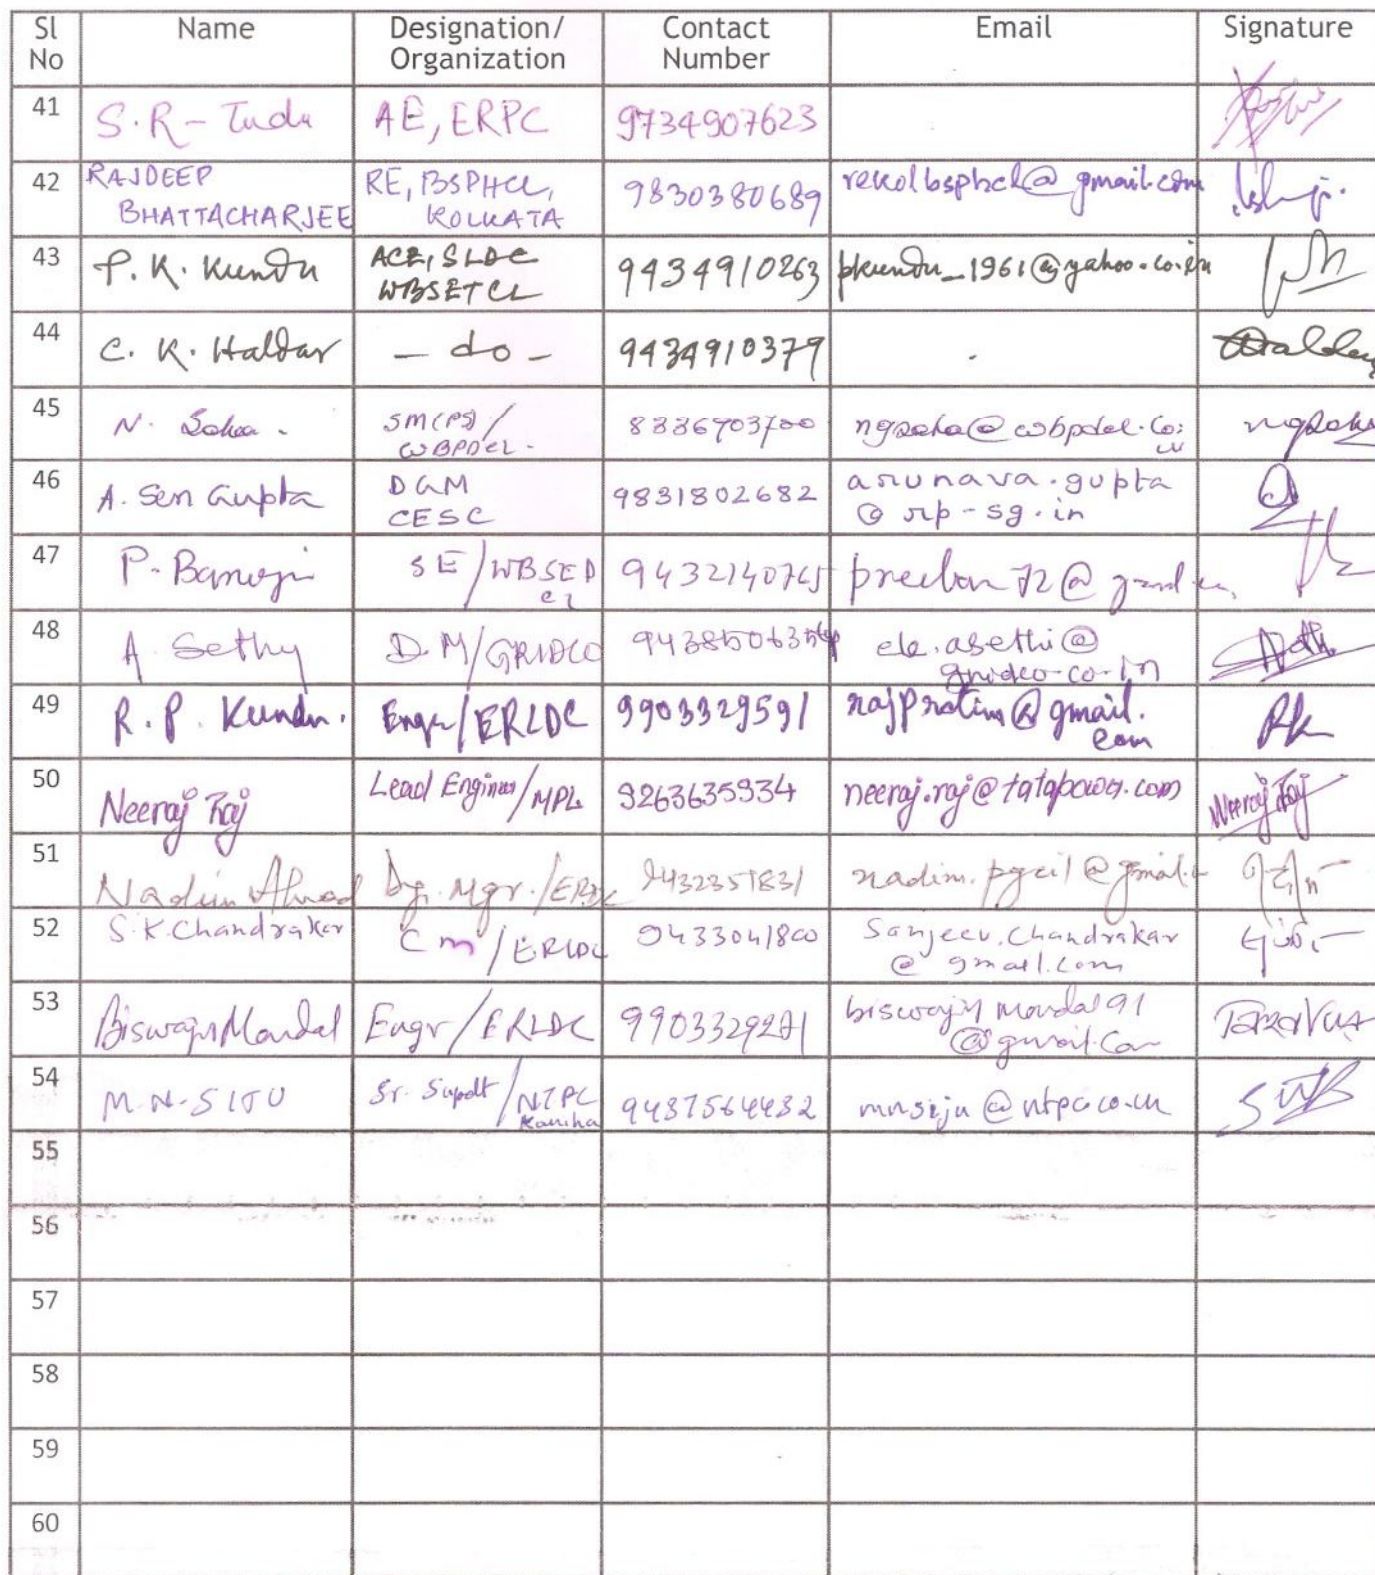 Sl No Name Designation/ Organization Contact Number Email Signature
41 S.R- Tudu AE, ERPC 9734907623
42 RAJDEEP BHATTACHARJEE RE, BSPHCL, KOLKATA 9830380689 rekolbsphcl@gmail.com
43 P. K. Kundu ACE, SLDC WBSETCL 9434910263 pkundu_1961@yahoo.co.in
44 C. K. Haldar - do - 9434910379 Haldar
45 N. Saha. SM(PS)/ WBPDCL. 8336903700 ngsaha@wbpdcl.co.in ngsaha
46 A. Sen Gupta DGM CESC 9831802682 arunava.gupta @rp-sg.in
47 P. Banerji SE/WBSEDCL
48 A Sethy D.M/GRIDCO ele.asethi@ gridco.co.in
49 R. P. Kundu. Engr/ERLDC 9903329591 rajpratim@gmail. com RK
50 Neeraj Raj Lead Engineer/MPL 9263635934 neeraj.raj@tatapower.com Neeraj Raj
51 Nadim Ahmad Dy. Mgr./ERLDC 9432351831 nadim.pgcil@gmail.
52 S.K.Chandrakar Cm/ERLDC 9433041800 Sanjeev.Chandrakar @gmail.com
53 Biswajit Mondal Engr/ERLDC 9903329271 biswajit mondal91 @gmail.com
54 M.N.SIJU Sr. Supdt/NTPC Kaniha 9437564432 mnsiju@ntpc.co.in
55
56
57
58
59
60